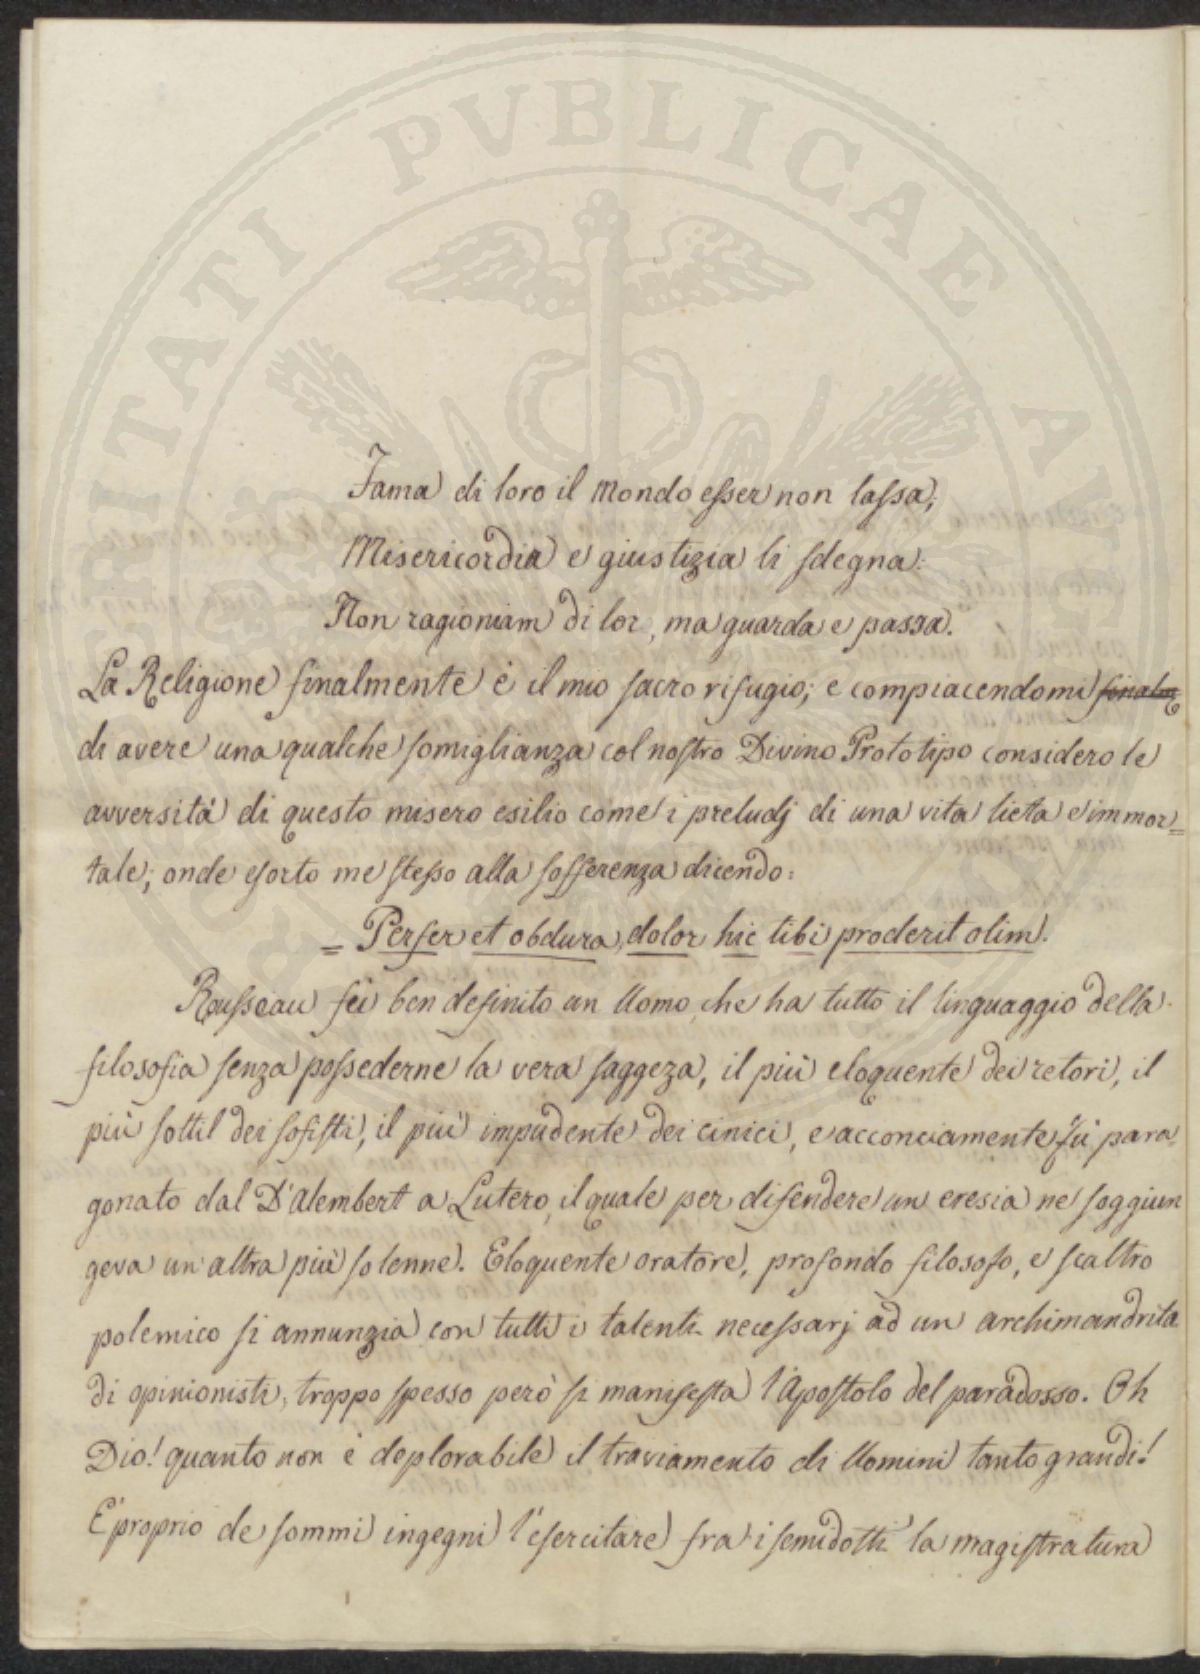 PVBLICAE
Fama di loro il Mondo esser non lassa,
Misericordia e giustizia li sdegna:
Non ragioniam di lor, ma guarda e passa.
La Religione finalmente è il mio sacro rifugio; e compiacendomi
di avere una qualche somiglianza col nostro Divino Prototipo considero le
avversità di questo misero esilio come i preludj di una vita lieta e immor=
tale; onde esorto me stesso alla sofferenza dicendo:
= Perfer et obdura, dolor hic tibi proderit olim.
Rousseau fù ben definito un Uomo, che ha tutto il linguaggio della
filosofia senza possederne la vera saggeza, il più eloquente dei retori, il
più sottil dei sofisti, il più impudente dei cinici, e acconciamente fù para
gonato dal D'Alembert a Lutero, il quale per difendere un eresia ne soggiun
geva un'altra più solenne. Eloquente oratore, profondo filosofo, e scaltro
polemico si annunzia con tutti i talenti necessarj ad un archimandrita
di opinionisti, troppo spesso però si manifesta l'Apostolo del paradosso. Oh
Dio! quanto non è deplorabile il traviamento di Uomini tanto grandi!
E' proprio de sommi ingegni l'esercitare fra i semidotti la magistratura